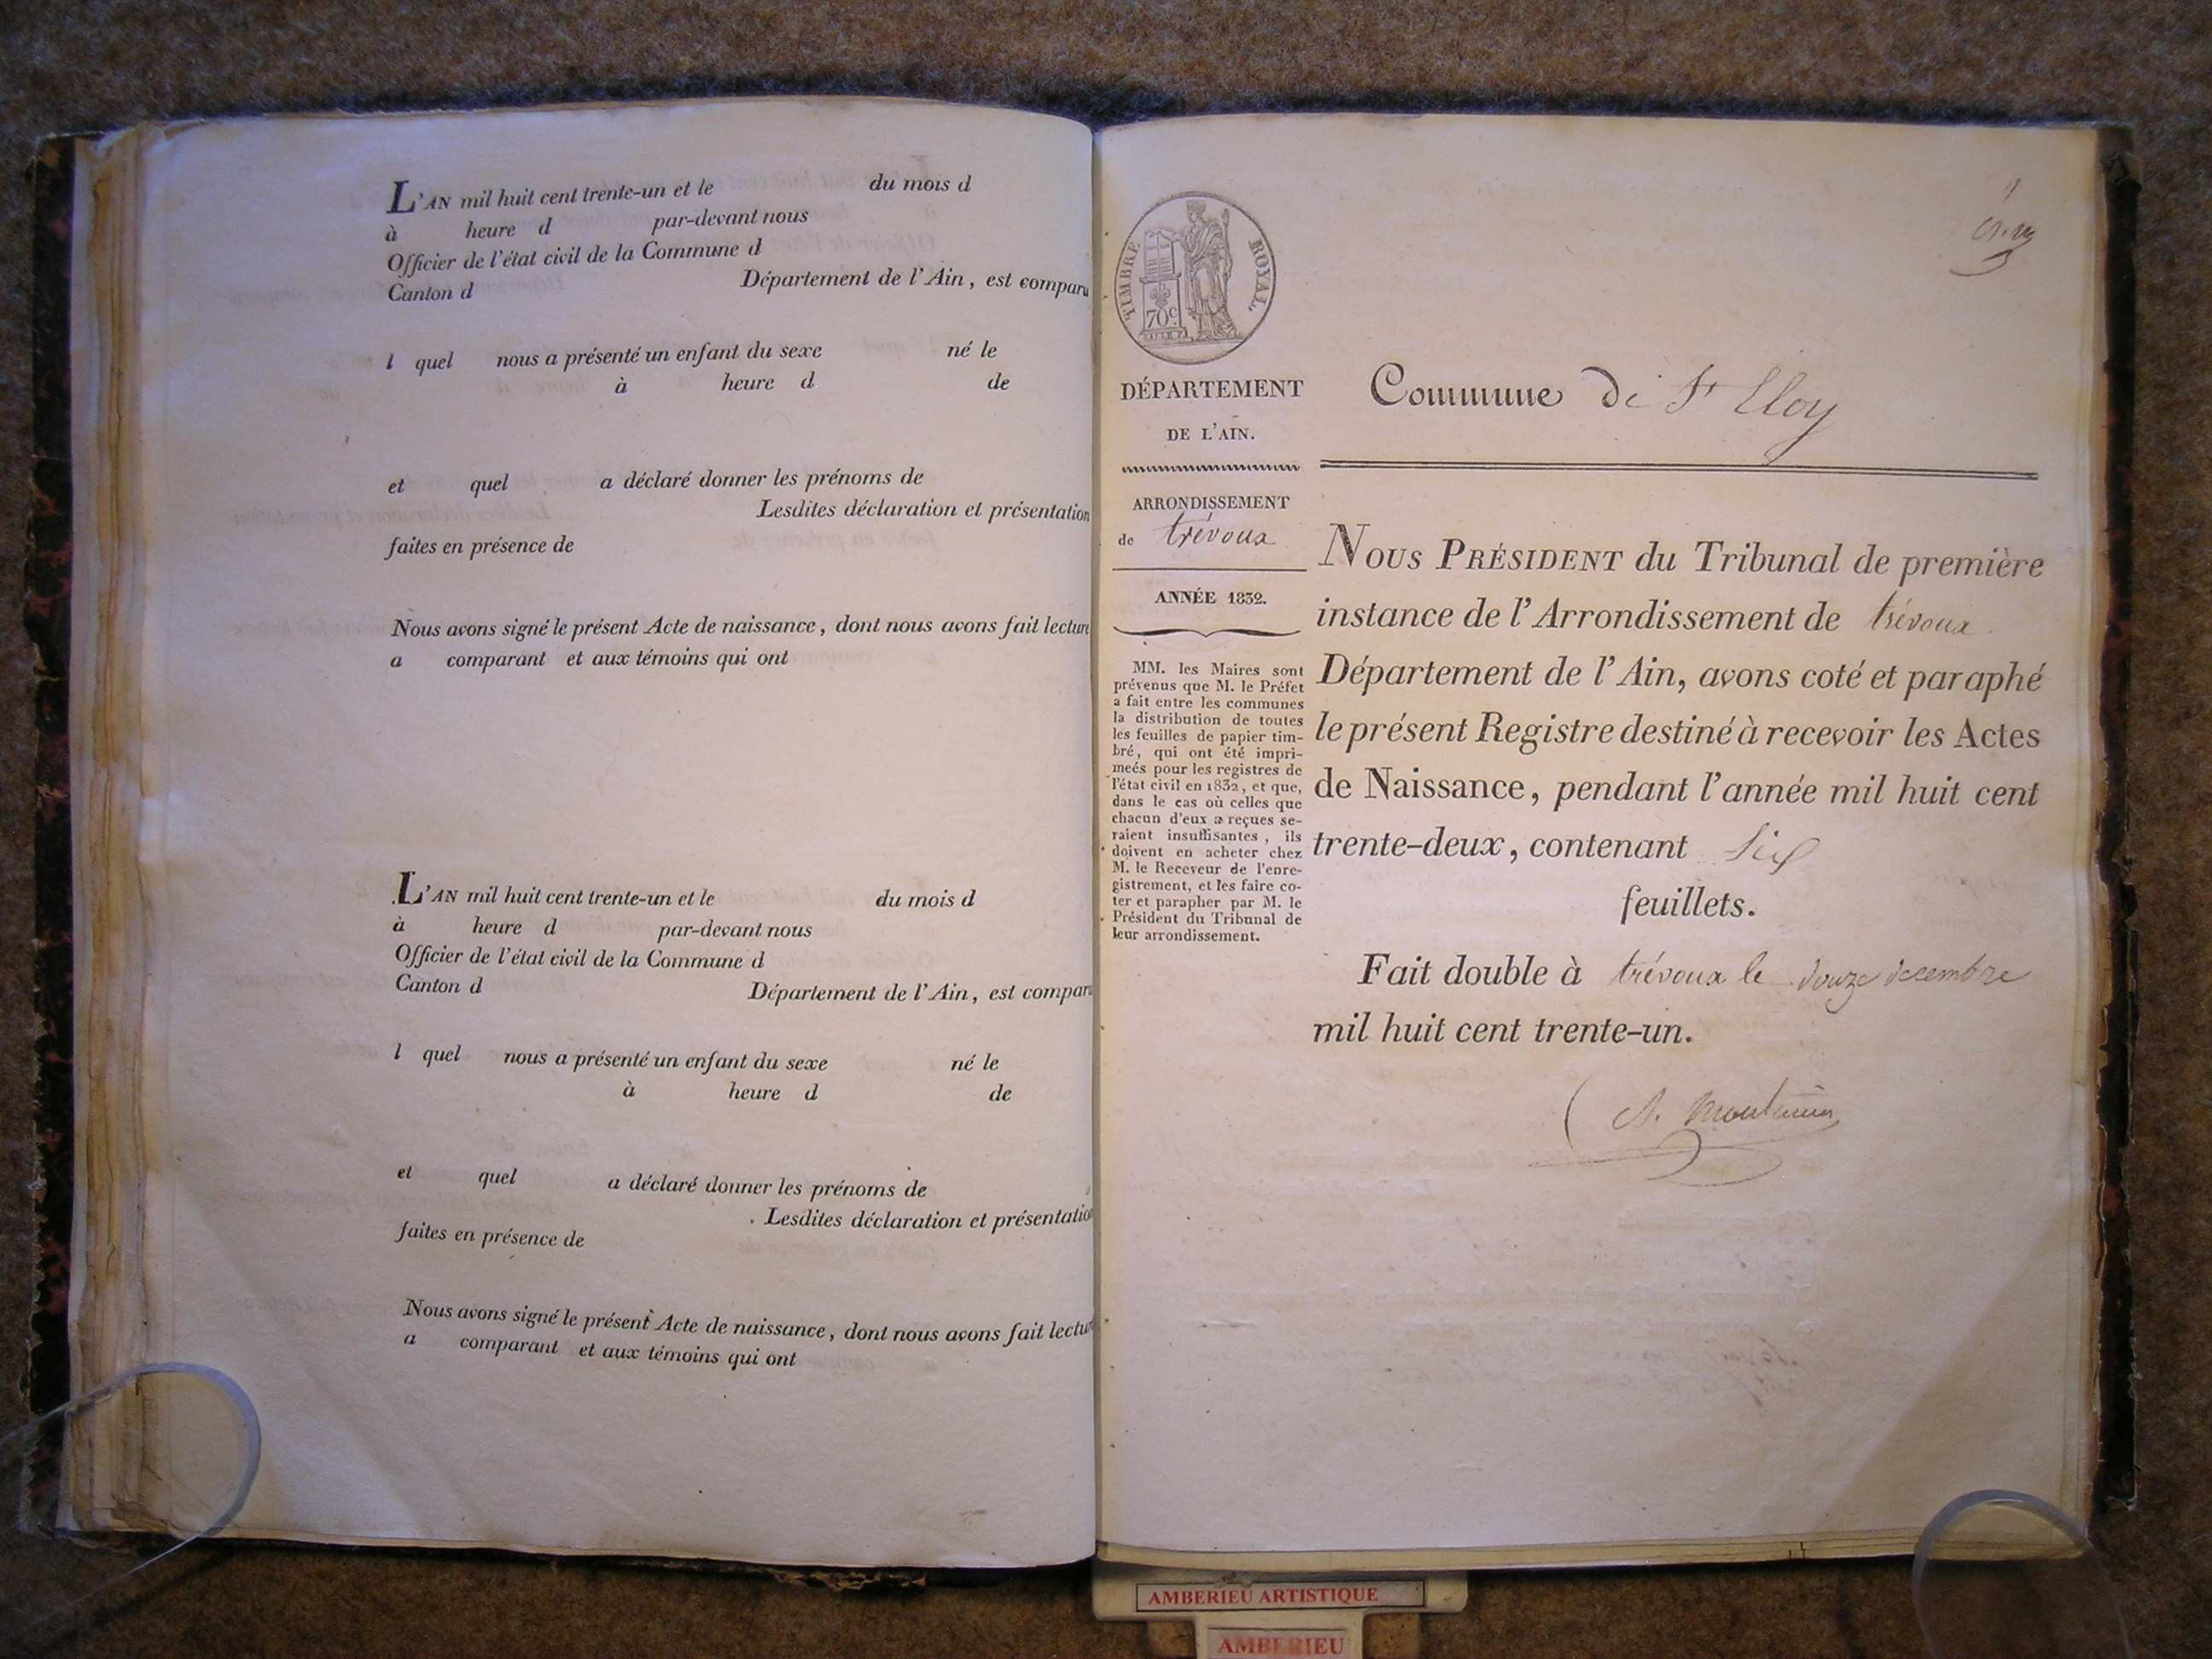 L'AN mil huit cent trente-un et le du mois d
à heure d par-devant nous
Officier de l'état civil de la Commune d
Canton d Département de l'Ain, est comparu
l quel nous a présenté un enfant du sexe né le
à heure d de
et quel a déclaré donner les prénoms de
Lesdites déclaration et présentation
faites en présence de
Nous avons signé le présent Acte de naissance, dont nous avons fait lecture
a comparant et aux témoins qui ont
L'AN mil huit cent trente-un et le du mois d
à heure d par-devant nous
Officier de l'état civil de la Commune d
Canton d Département de l'Ain, est comparu
l quel nous a présenté un enfant du sexe né le
à heure d de
et quel a déclaré donner les prénoms de
Lesdites déclaration et présentation
faites en présence de
Nous avons signé le présent Acte de naissance, dont nous avons fait lecture
a comparant et aux témoins qui ont
TIMBRE ROYAL
70c.
DÉPARTEMENT
DE L'AIN.
ARRONDISSEMENT
de trévoux
ANNÉE 1832.
MM. les Maires sont
prévenus que M. le Préfet
a fait entre les communes
la distribution de toutes
les feuilles de papier tim-
bré, qui ont été impri-
meés pour les registres de
l'état civil en 1832, et que,
dans le cas où celles que
chacun d'eux a reçues se-
raient insuffisantes, ils
doivent en acheter chez
M. le Receveur de l'enre-
gistrement, et les faire co-
ter et parapher par M. le
Président du Tribunal de
leur arrondissement.
Commune de St Eloy
NOUS PRÉSIDENT du Tribunal de première
instance de l'Arrondissement de trévoux
Département de l'Ain, avons coté et paraphé
le présent Registre destiné à recevoir les Actes
de Naissance, pendant l'année mil huit cent
trente-deux, contenant Six
feuillets.
Fait double à trévoux le douze decembre
mil huit cent trente-un.
AMBERIEU ARTISTIQUE
AMBERIEU